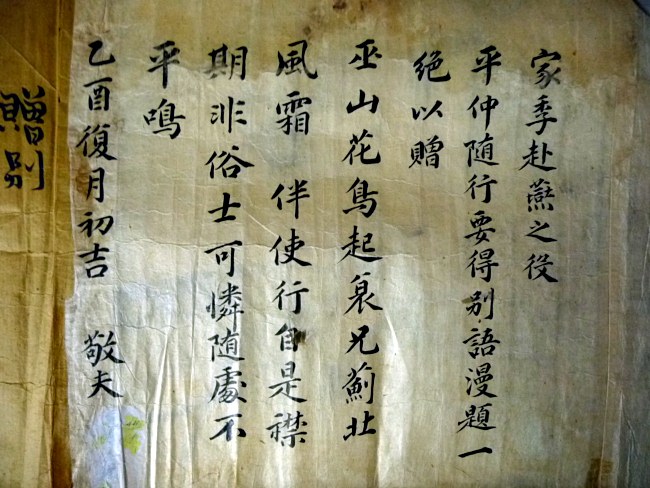 家季赴燕之役
平仲随行要得别語漫題一
絶以贈
巫山花鳥起哀兄薊北
風霜 伴使行自是襟
期非俗士可憐随處不
平鳴
乙酉復月初吉 敬夫
贈别